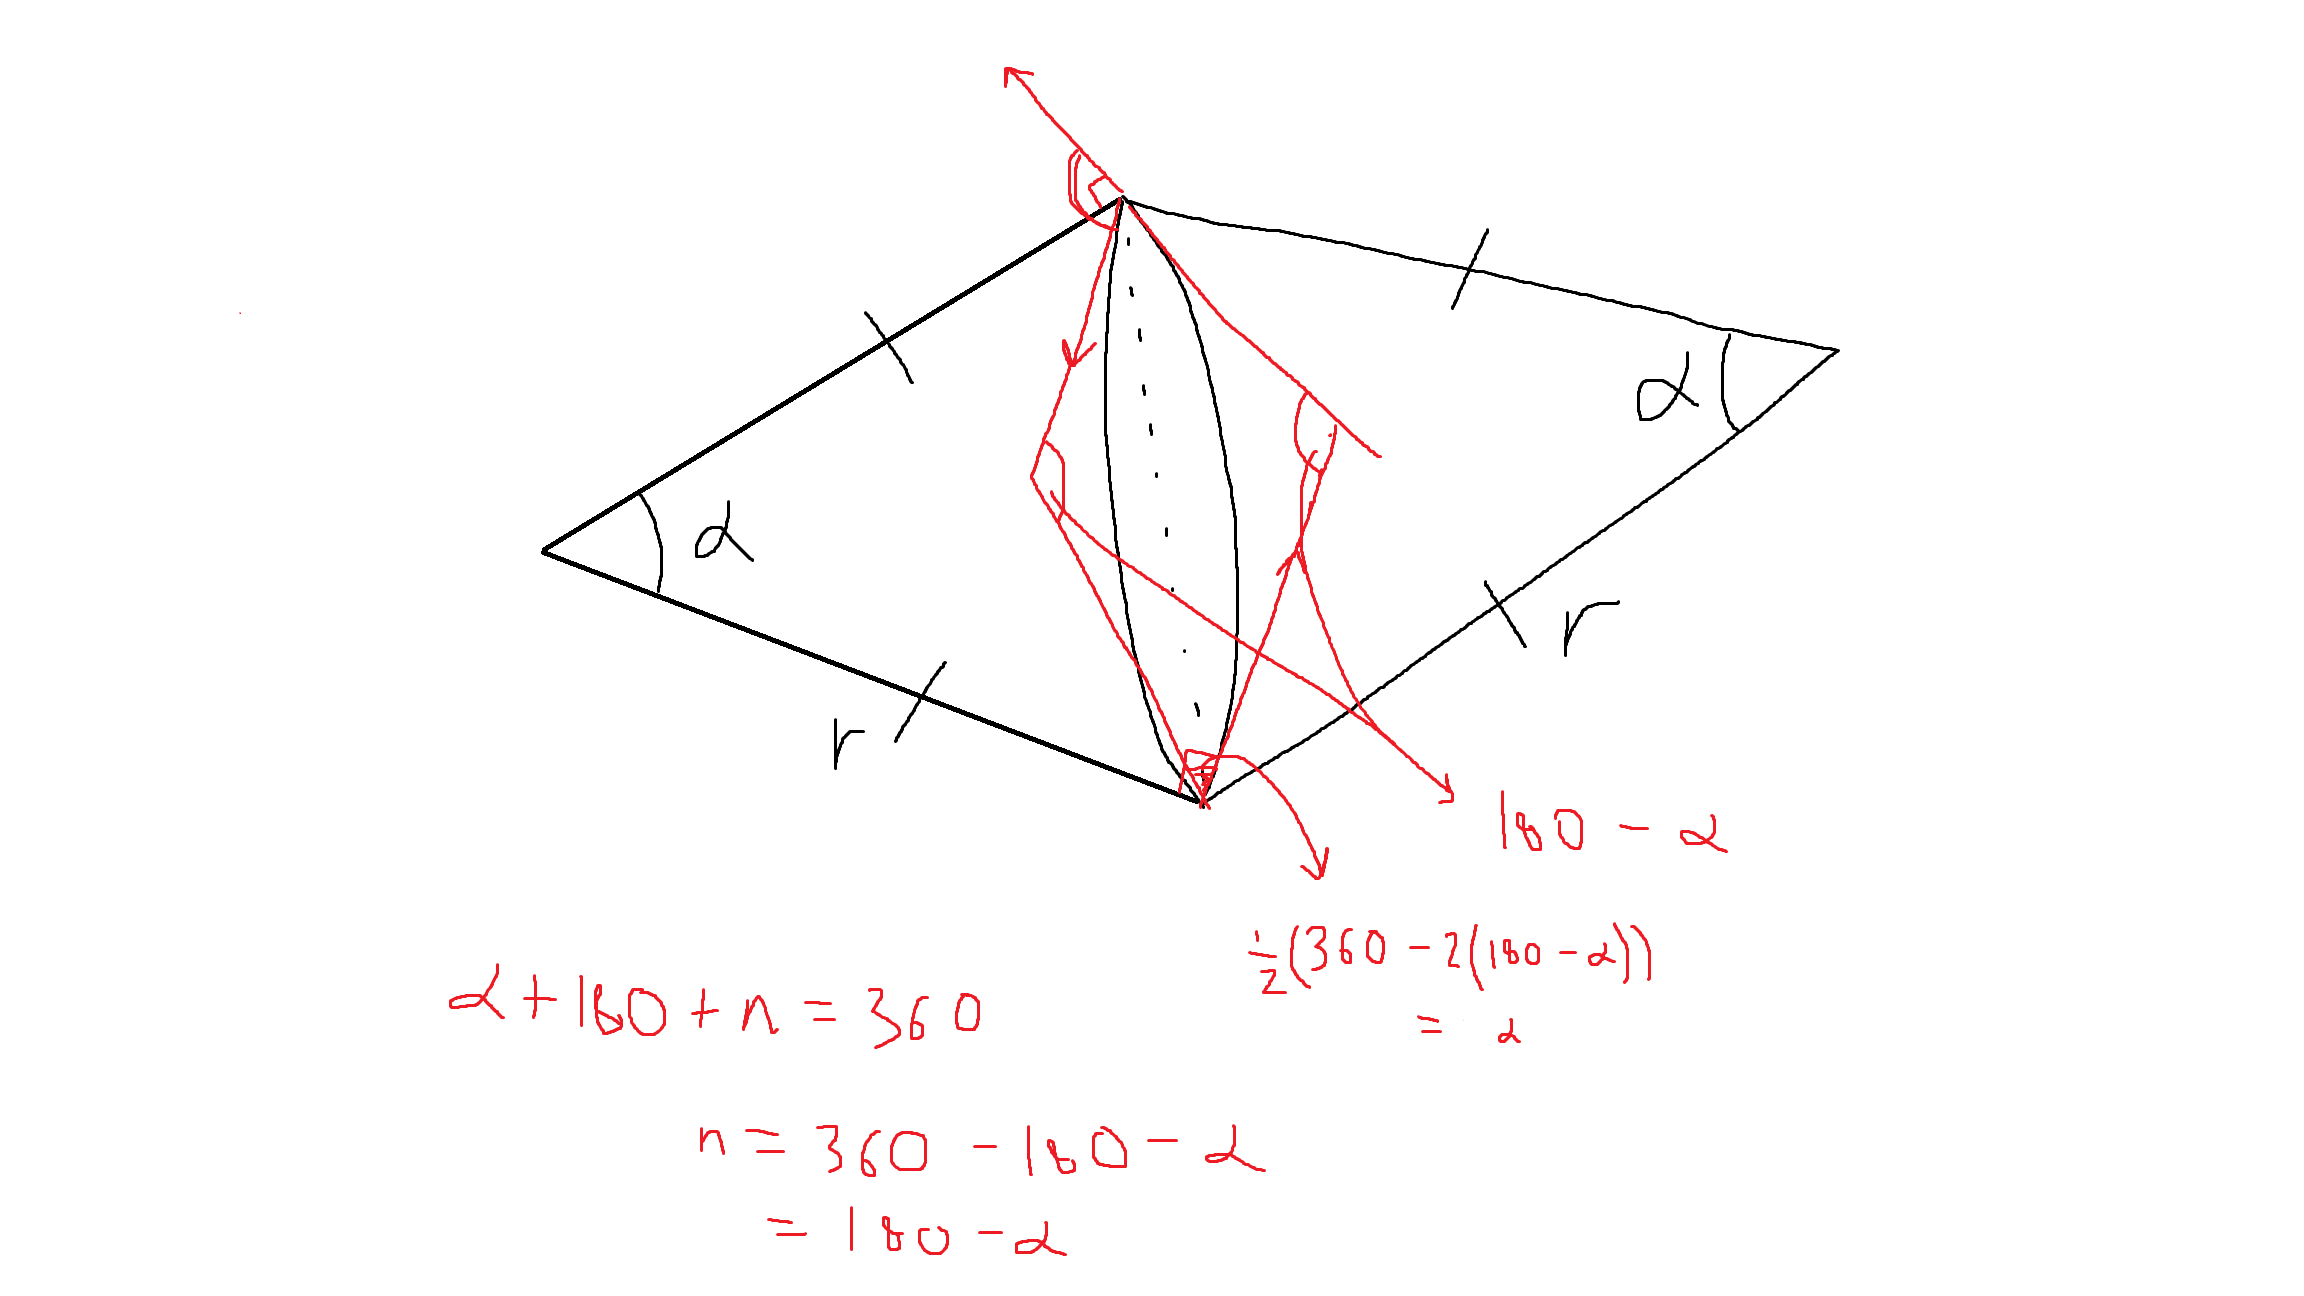 α
α
r
r
180 - α
1/2(360 - 2(180 - α))
= α
α + 180 + n = 360
n = 360 - 180 - α
= 180 - α